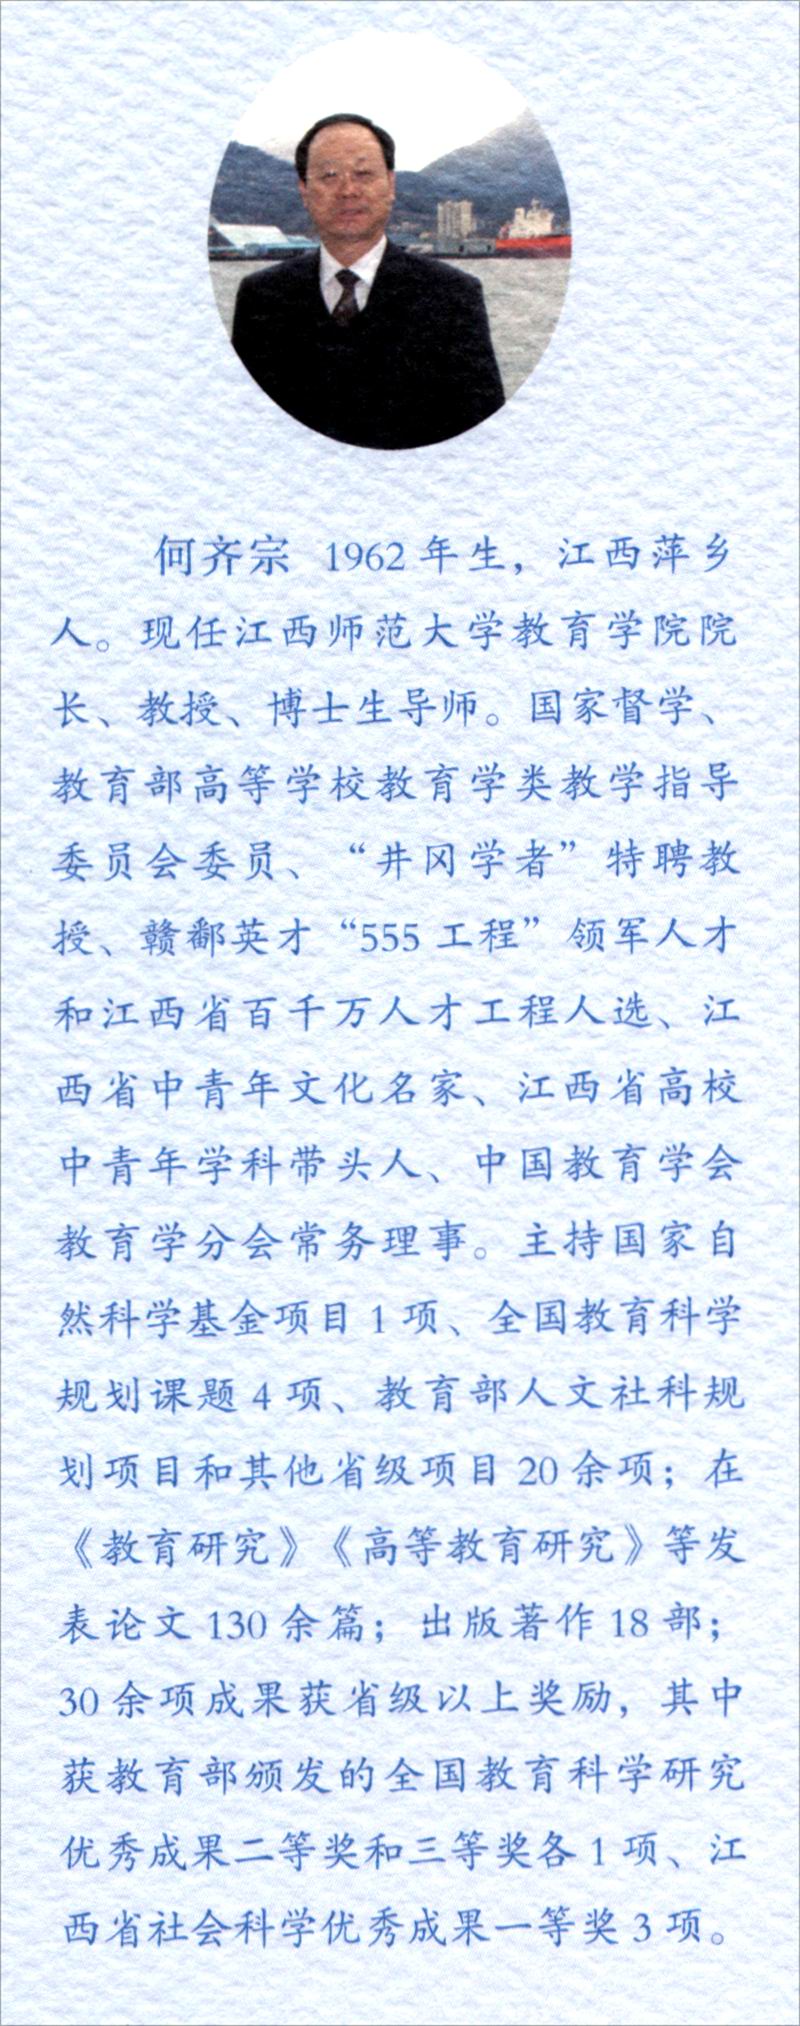 何齐宗 1962年生，江西萍乡
人。现任江西师范大学教育学院院
长、教授、博士生导师。国家督学、
教育部高等学校教育学类教学指导
委员会委员、“井冈学者”特聘教
授、赣鄱英才“555工程”领军人才
和江西省百千万人才工程人选、江
西省中青年文化名家、江西省高校
中青年学科带头人、中国教育学会
教育学分会常务理事。主持国家自
然科学基金项目1项、全国教育科学
规划课题4项、教育部人文社科规
划项目和其他省级项目20余项；在
《教育研究》《高等教育研究》等发
表论文130余篇；出版著作18部；
30余项成果获省级以上奖励，其中
获教育部颁发的全国教育科学研究
优秀成果二等奖和三等奖各1项、江
西省社会科学优秀成果一等奖3项。